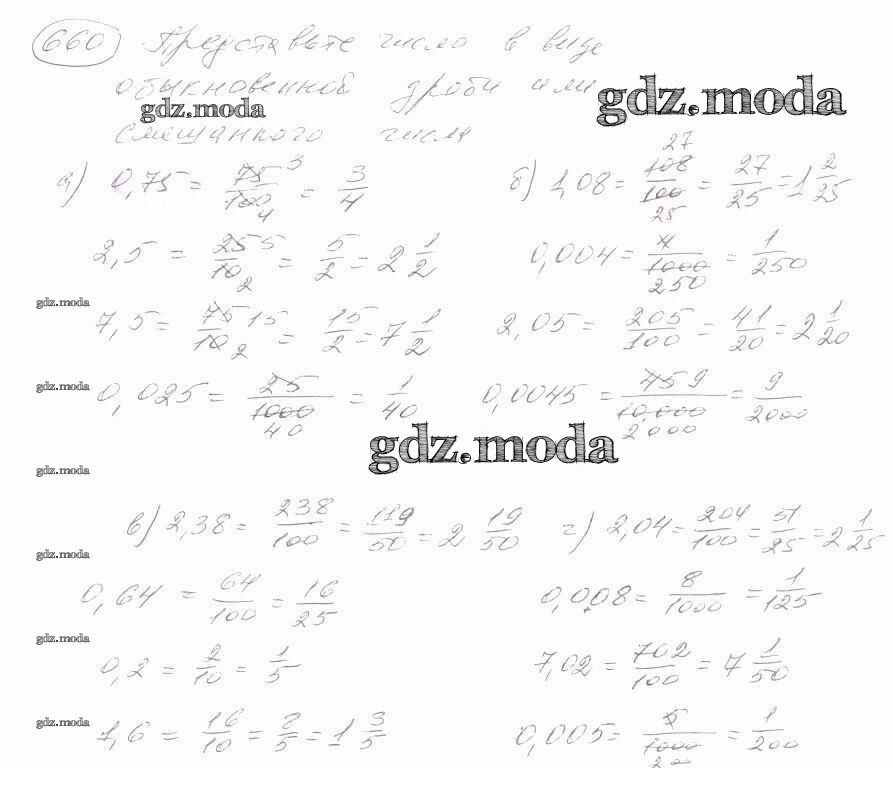 660 Представьте число в виде
обыкновенной дроби или
gdz.moda
gdz.moda
смешанного числа
а) 0,75 = 75/100 3 4 = 3/4
б) 1,08 = 27 108/100 25 = 27/25 = 1 2/25
2,5 = 25/10 5 2 = 5/2 = 2 1/2
0,004 = 4/1000 250 = 1/250
gdz.moda
7,5 = 75/10 15 2 = 15/2 = 7 1/2
2,05 = 205/100 = 41/20 = 2 1/20
gdz.moda
0,025 = 25/1000 40 = 1/40
0,0045 = 45/10.000 9 2000 = 9/2000
gdz.moda
gdz.moda
в) 2,38 = 238/100 = 119/50 = 2 19/50
г) 2,04 = 204/100 = 51/25 = 2 1/25
gdz.moda
0,64 = 64/100 = 16/25
0,008 = 8/1000 = 1/125
gdz.moda
0,2 = 2/10 = 1/5
7,02 = 702/100 = 7 1/50
gdz.moda
1,6 = 16/10 = 8/5 = 1 3/5
0,005 = 5/1000 200 = 1/200